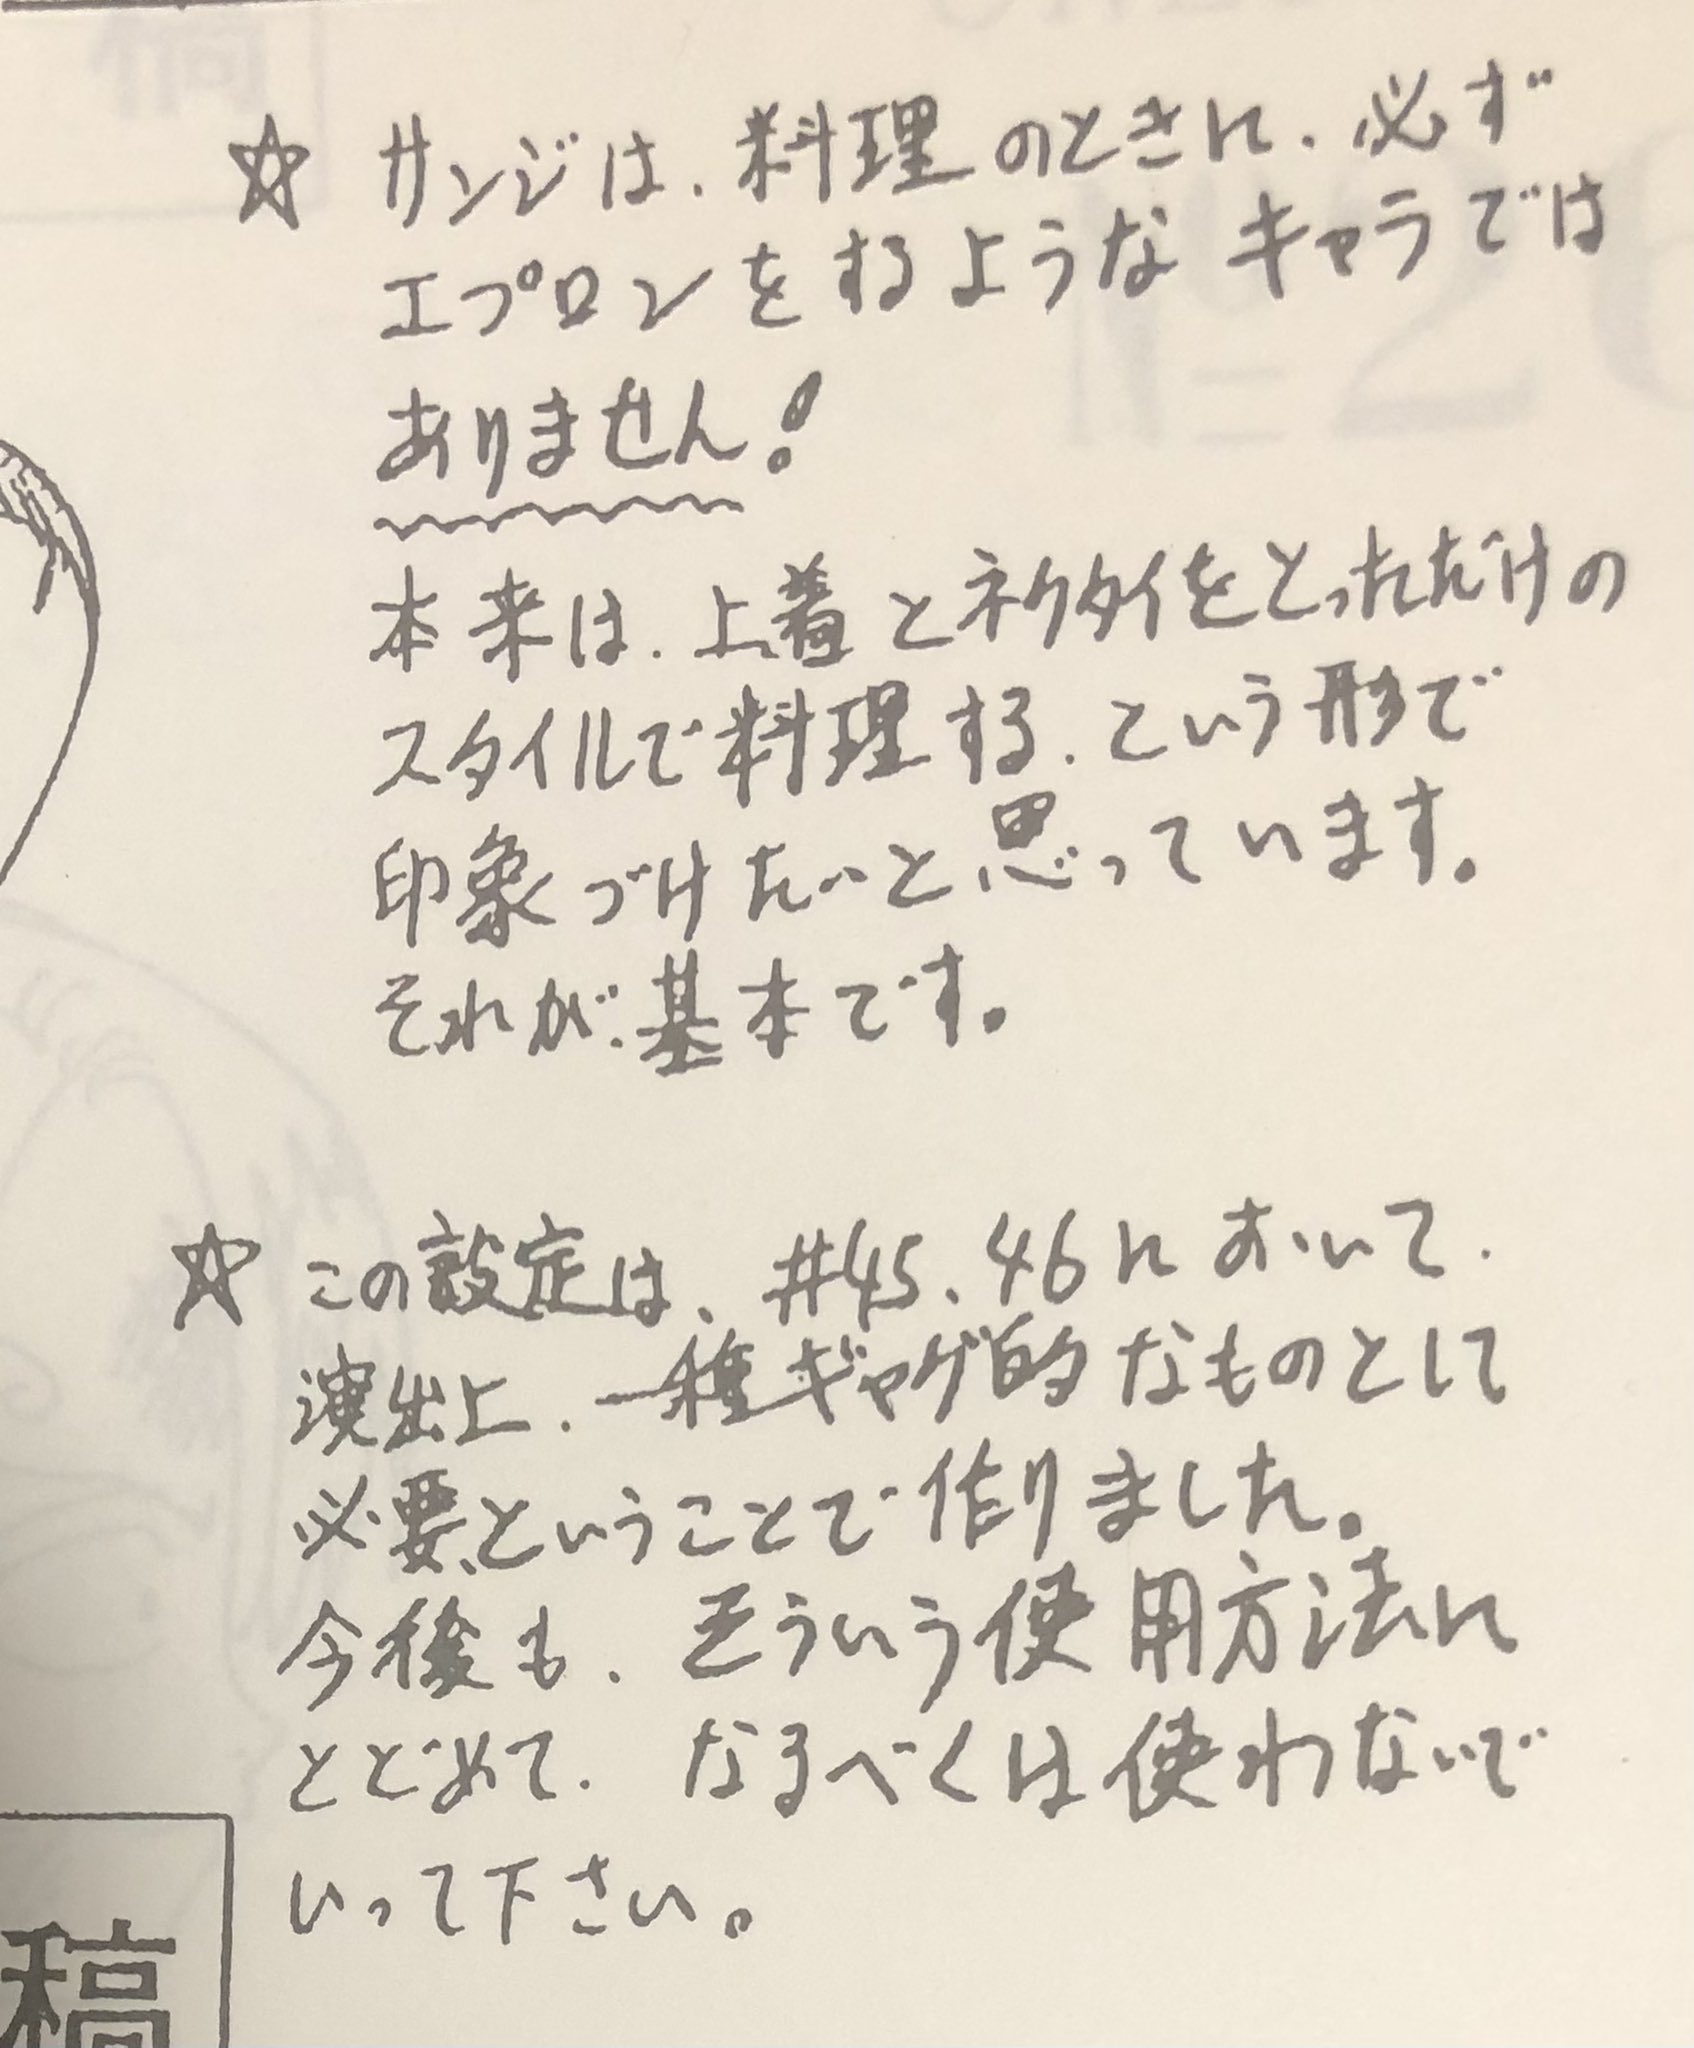 ☆ サンジは、料理のときに、必ず
エプロンをするようなキャラでは
ありません!
本来は、上着とネクタイをとっただけの
スタイルで料理する、という形で
印象づけたいと思っています。
それが、基本です。
☆ この設定は、#45、46において、
演出上、一種ギャグ的なものとして
必要、ということで作りました。
今後も、そういう使用方法に
とどめて、なるべくは使わないで
いって下さい。
稿